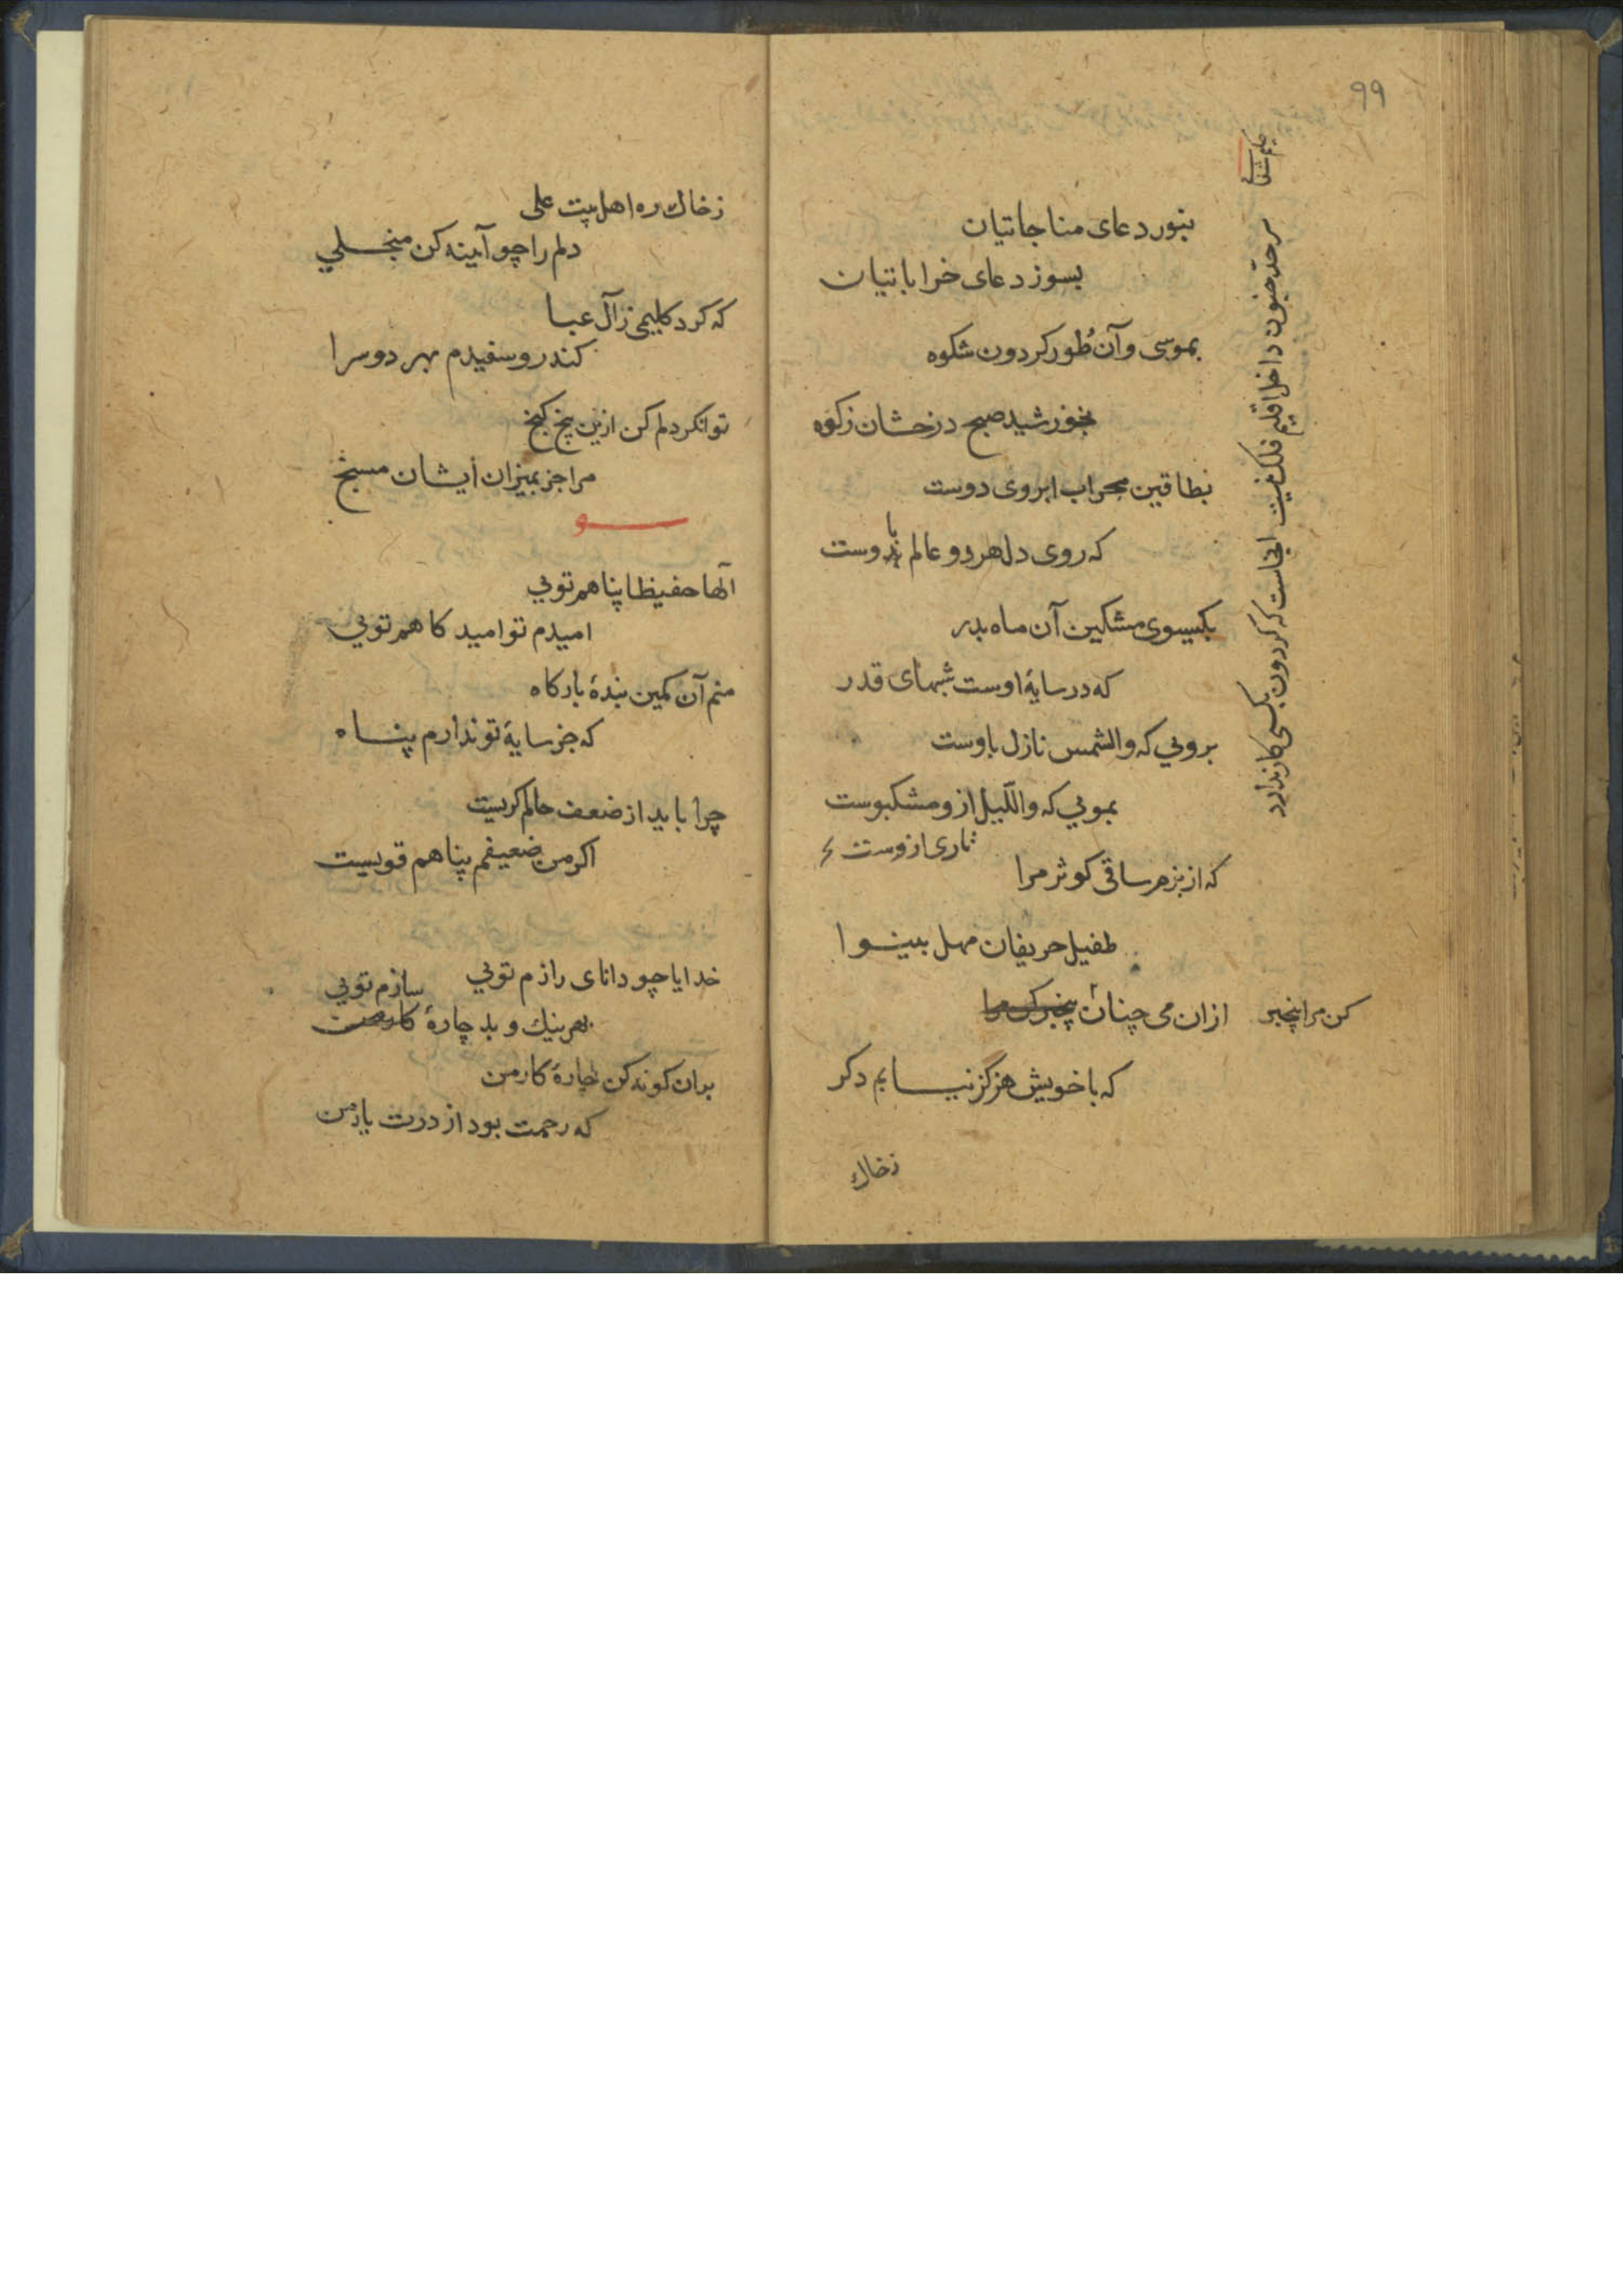 ۹۹
بنور دعای مناجاتیان
بسوز دعای خراباتیان
بموسی و آن طُور کردون شکوه
بخورشید صبح درخشان زکوه
بطاقین محراب ابروی دوست
که روی دل هر دو عالم بدوست
با
بکیسوی مشکین آن ماه بدر
که در سایهٔ اوست شبهای قدر
برویی که والشمس نازل باوست
بمویی که واللّیل ازو مشکبوست
تاری ازوست
که از بزم ساقی کوثر مرا
طفیل حریفان مهل بینوا
ازان می چنان بیخبر کن مرا
کن مرا بیخبر
که با خویش هرگز نیایم دکر
زخاك
حکیم شفائی
سر حدّ جنون داخل اقلیم فلک نیست
اینجاست که کردون بکسی کار ندارد
زخاك ره اهل بیت علی
دلم را چو آیینه کن منجلي
که کرد کلیمی ز آل عبا
کند رو سفیدم بهر دو سرا
توانکر دلم کن ازین پنج کنج
مرا جز بمیزان ایشان مسنج
الٓها حفیظا پناهم تویی
امیدم تو امید کاهم تویی
منم آن کمین بندهٔ بارکاه
که جز سایهٔ تو ندارم پناه
چرا باید از ضعف حالم کریست
اکر من ضعیفم پناهم قویست
خدایا چو دانای رازم تویی
بهر نیك و بد چارهٔ کار منست
سازم تویی
بران کونه کن چارهٔ کار من
که رحمت بود از درت یار من